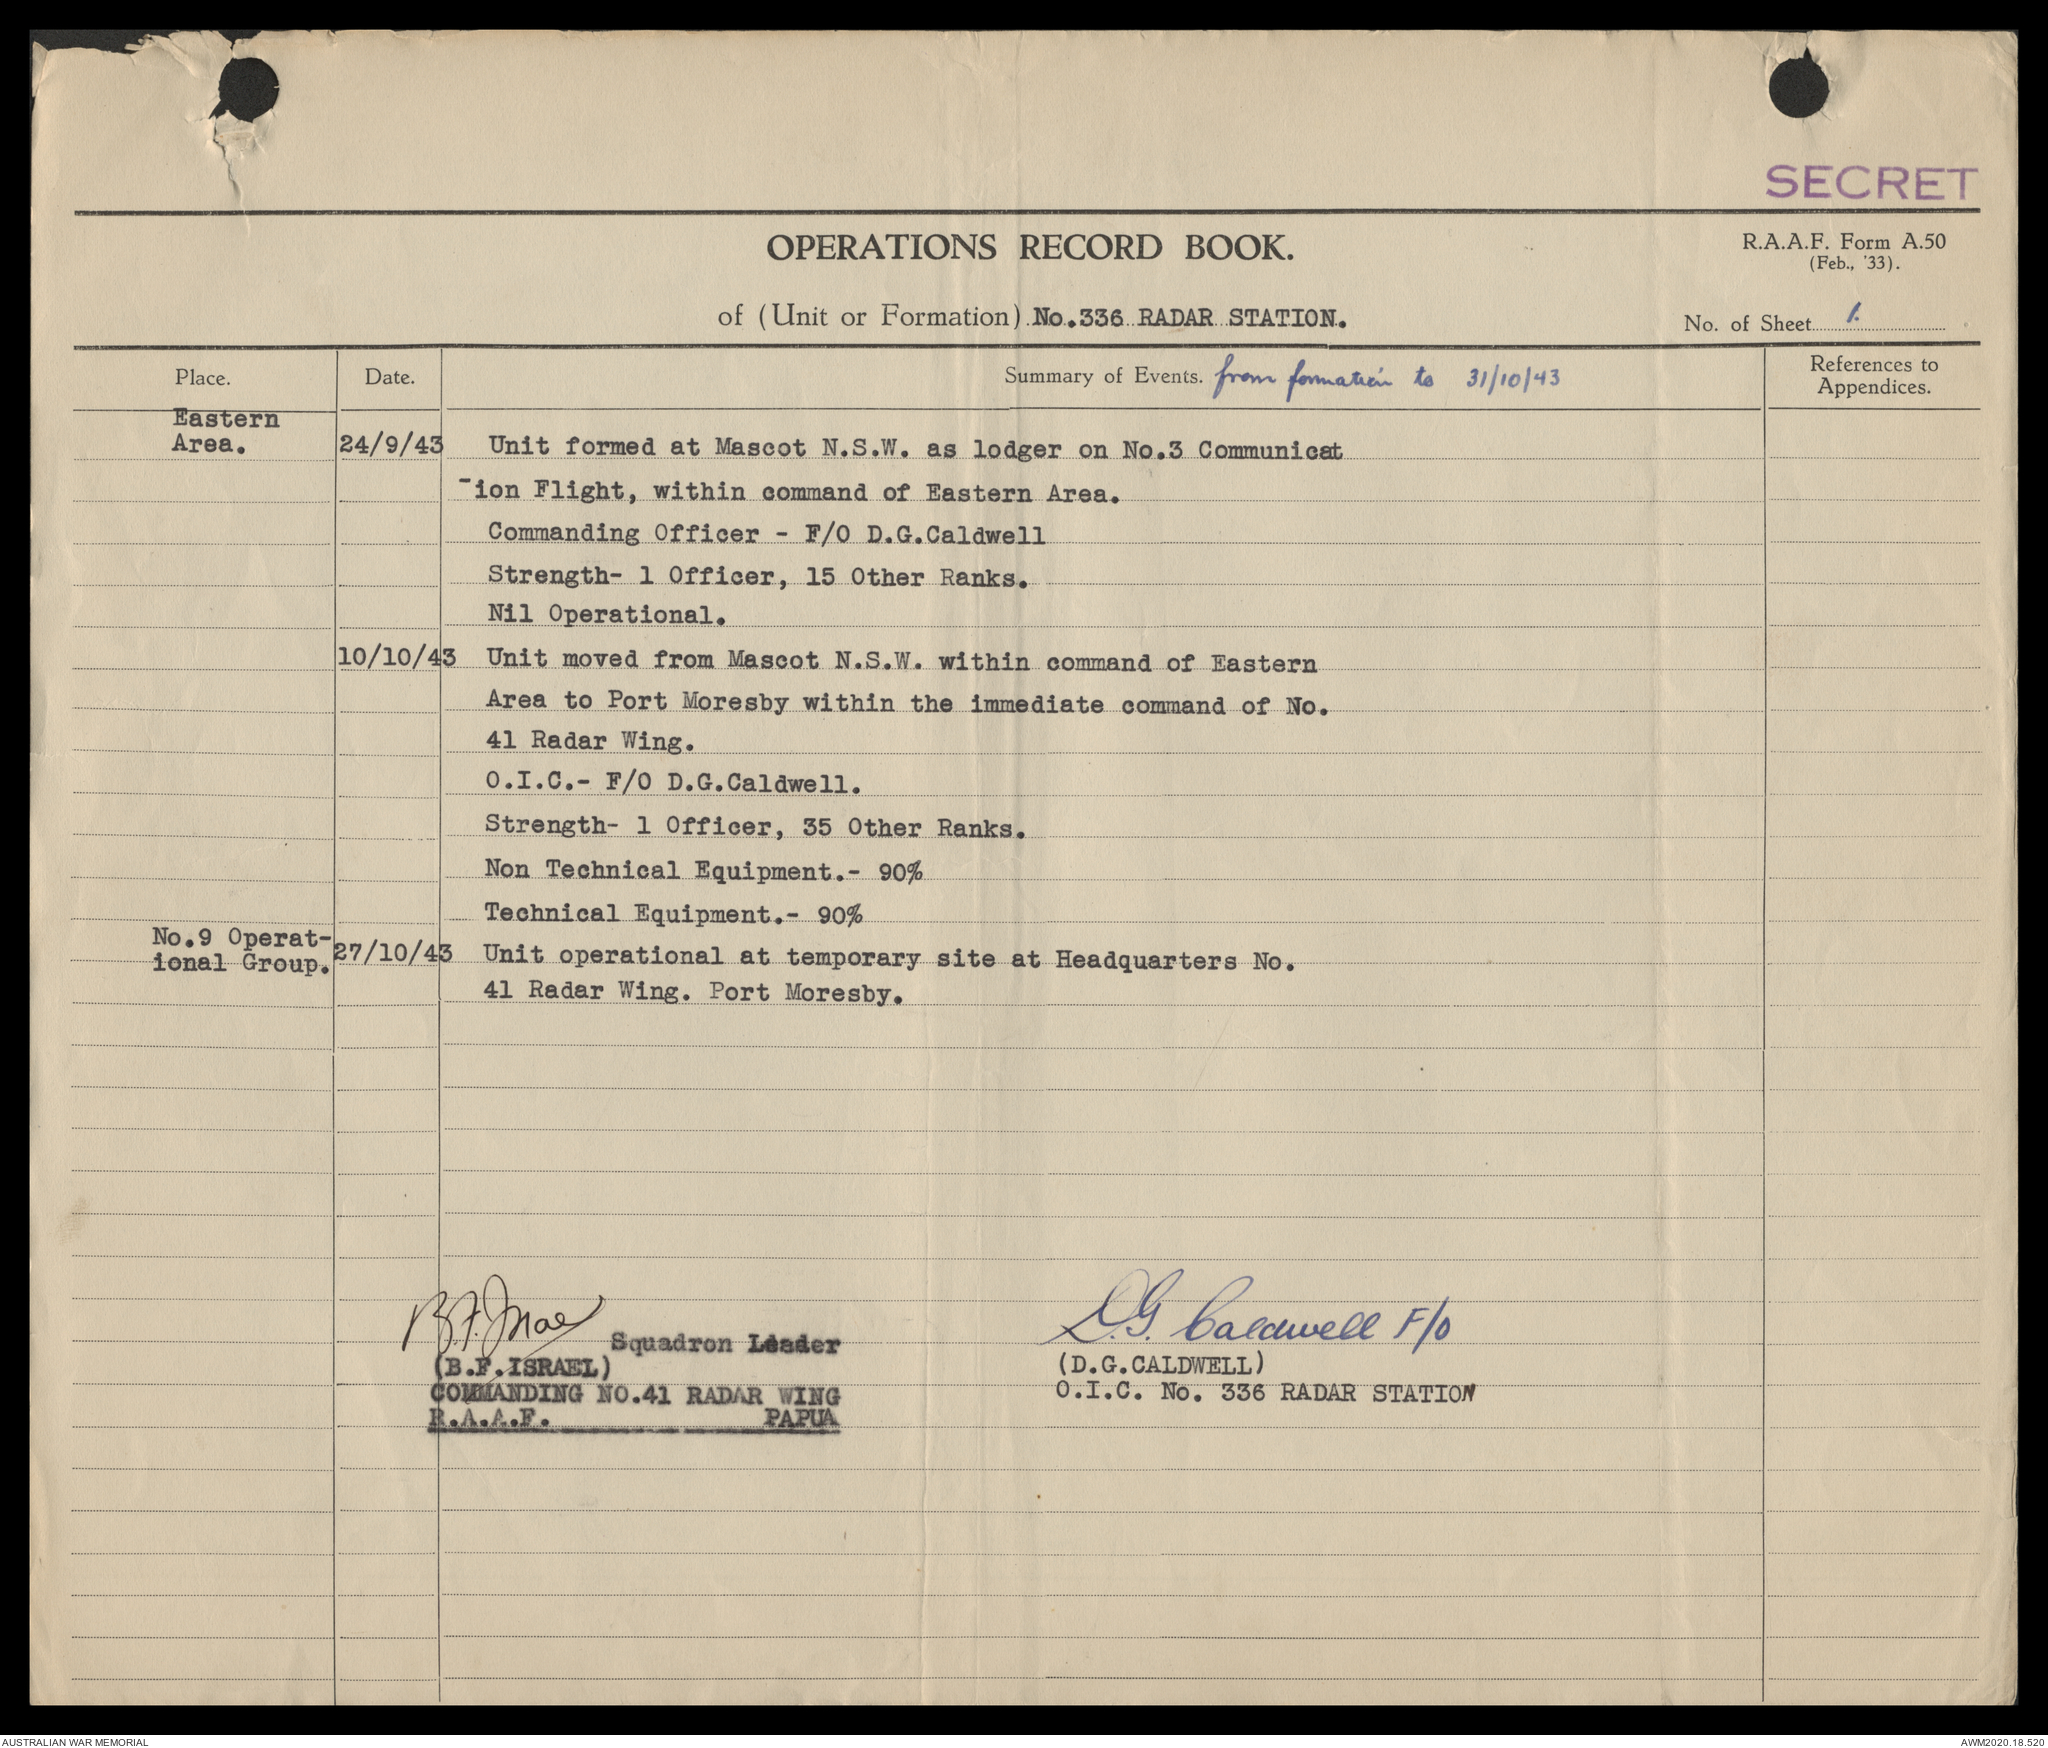 SECRET
OPERATIONS RECORD BOOK.
R.A.A.F. Form A.50
(Feb., '33).
of (Unit or Formation) No.336 RADAR STATION.
No. of Sheet 1.
Place.
Date.
Summary of Events. from formation to 31/10/43
References to
Appendices.
Eastern
Area.
24/9/43 Unit formed at Mascot N.S.W. as lodger on No.3 Communicat
-ion Flight, within command of Eastern Area.
Commanding Officer - F/O D.G.Caldwell
Strength- 1 Officer, 15 Other Ranks.
Nil Operational.
10/10/43 Unit moved from Mascot N.S.W. within command of Eastern
Area to Port Moresby within the immediate command of No.
41 Radar Wing.
O.I.C.- F/O D.G.Caldwell.
Strength- 1 Officer, 35 Other Ranks.
Non Technical Equipment.- 90%
Technical Equipment.- 90%
No.9 Operat-
ional Group.
27/10/43 Unit operational at temporary site at Headquarters No.
41 Radar Wing. Port Moresby.
Squadron Leader
(B.F.ISRAEL)
COMMANDING NO.41 RADAR WING
R.A.A.F. PAPUA
D.G. Caldwell F/O
(D.G.CALDWELL)
O.I.C. No. 336 RADAR STATION
AUSTRALIAN WAR MEMORIAL
AWM2020.18.520